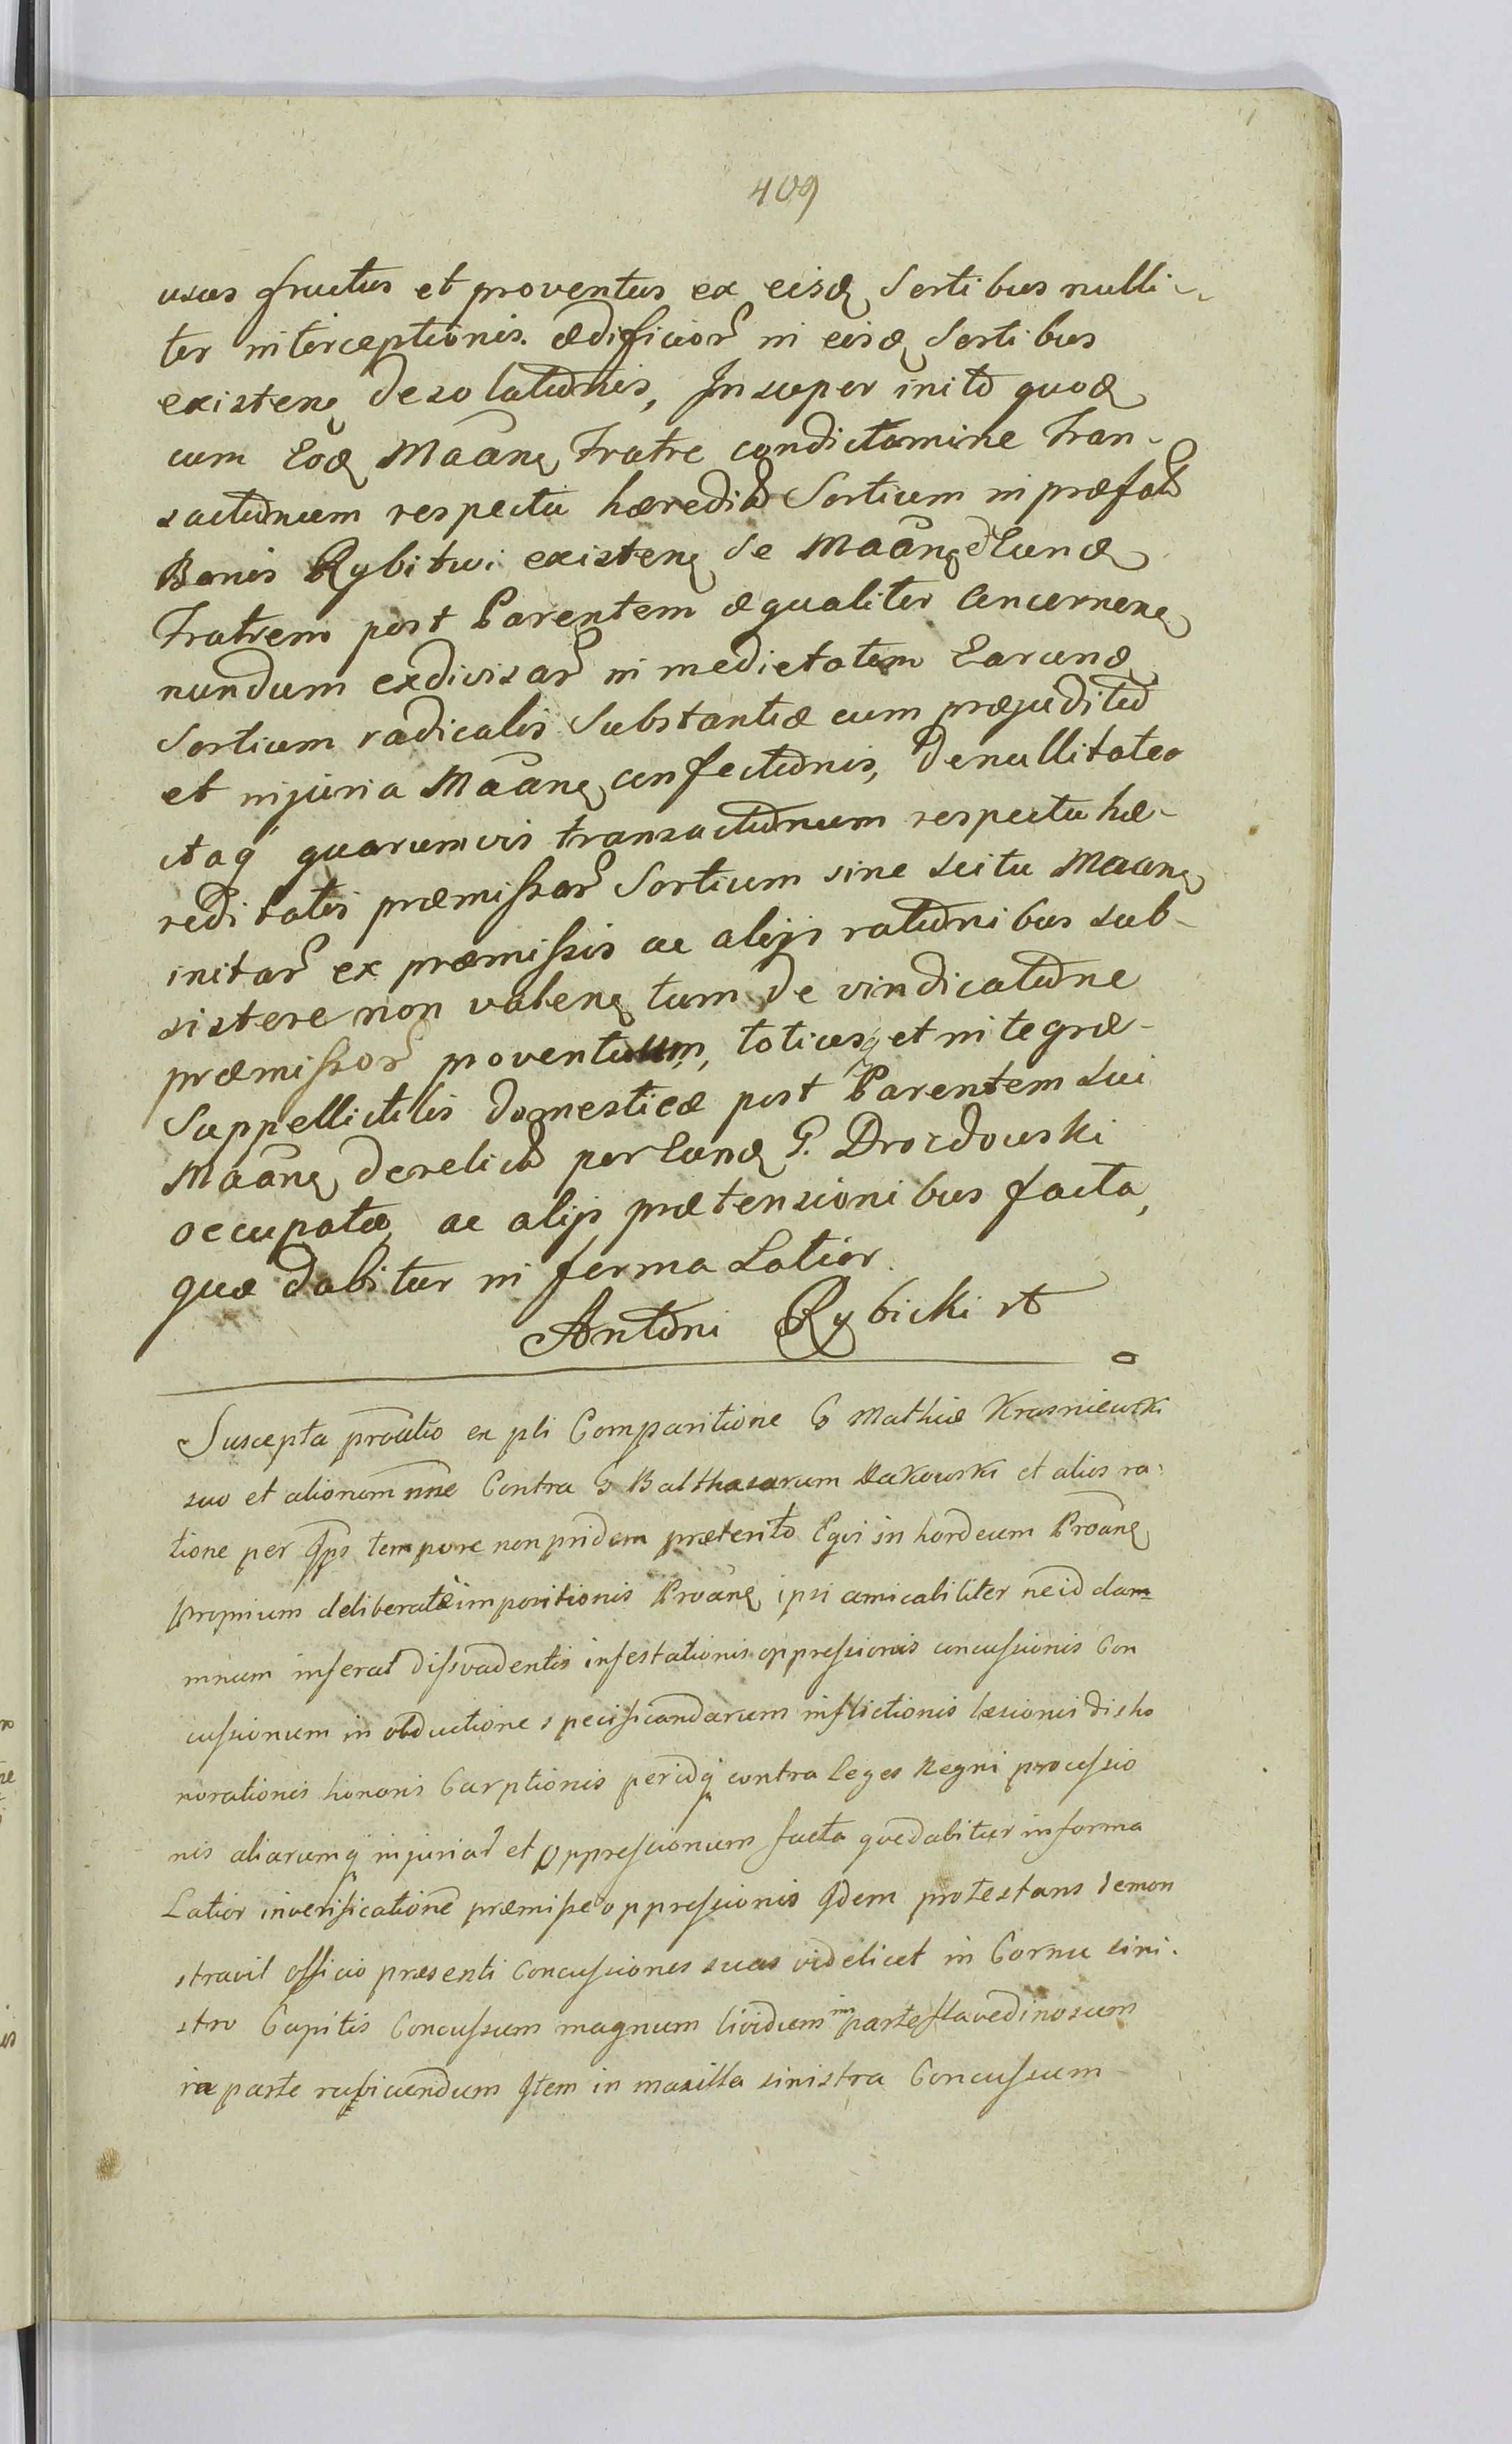 409
usus fructus et proventus ex eisd Sortibus nulli-
ter interceptionis. ædificior in eisd Sortibus
existen desolationis, Insuper inito quod
cum Eod Maãn Fratre condictamine Tran-
sactionum respectu hæredit Sortium in præfat
Bonis Rybitwi existen se Maãn et Eund
Fratrem post Parentem æqualiter Concernen
nundum exdivisar in medietatem Earund
Sortium radicalis Substantiæ cum præjuditio
et injuria Maãn confectionis, De nullitate
itaq quarumvis transactionum respectu hæ-
reditatis præmissar Sortium sine scitu Maan
initar ex præmissis ac alijs rationibus sub-
sistere non valen tum De vindicatione
præmissor proventuum, totius et integræ
Suppellictilis Domesticæ post Parentem sui
Maãn derelict per Eund G. Drozdowski
occupatæ, ac alijs prætensionibus facta,
quæ dabitur in forma Latior.
Antoni Rybicki
Suscepta proãtio ex pli Comparitione G Mathiæ Krasniewski
suo et alionom nne Contra G Balthasarum Makowski et alios ra:
tione per Ips tempore non pridem præterito Eqvi in hordeum Proãn
proprium deliberatè impositionis Proãn ipsi amicabiliter ne id dam
mnum inferat dissvadentis infestationis oppressionis concussionis Con
cussionum in obductione specificandarum inflictionis læsionis disho
norationis honoris Carptionis per idq contra Leges Regni processio
nis aliarumq injuriar et Oppressionum facta qvæ dabitur in forma
Latior in verificatione præmissæ oppressionis Idem protestans demon
stravit officio præsenti Concussiones suas videlicet in Cornu sini-
stro Capitis Concussum magnum lividum in parte flavedinosum
in parte rubicundum Item in maxilla sinistra Concussum